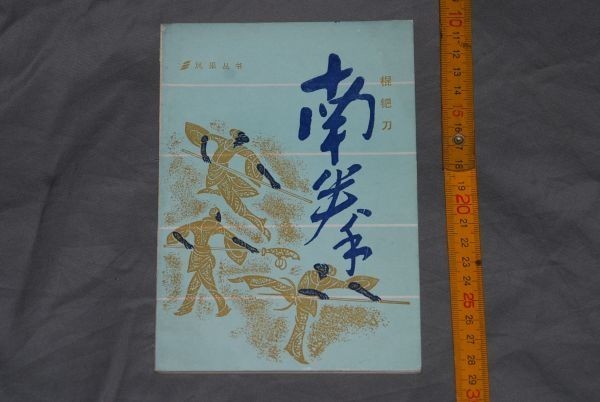 风采丛书
南拳
棍钯刀
10
11
12
13
14
15
16
17
18
19
20
21
22
23
24
25
26
27
28
29